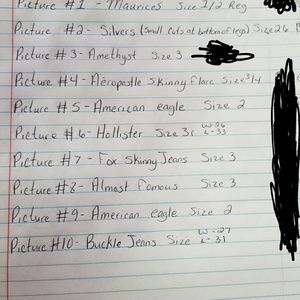 Picture #1 - Maurices Size 1/2 Reg
Picture #2- Silvers (Small cuts at bottom of legs) Size 26
Picture #3- Amethyst Size 3
Picture #4- Aeropostle Skinny flare Size 3/4
Picture #5- American eagle Size 2
Picture #6- Hollister Size 3r W-26 L-33
Picture #7- Fox Skinny Jeans Size 3
Picture #8- Almost famous Size 3
Picture #9- American eagle Size 2
Picture #10- Buckle Jeans Size W-27 L-31